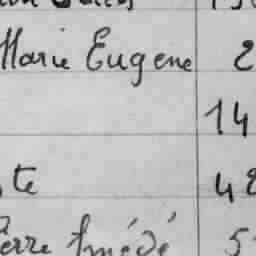 Marie Eugene 2
14
te 42
erre Amédé 5